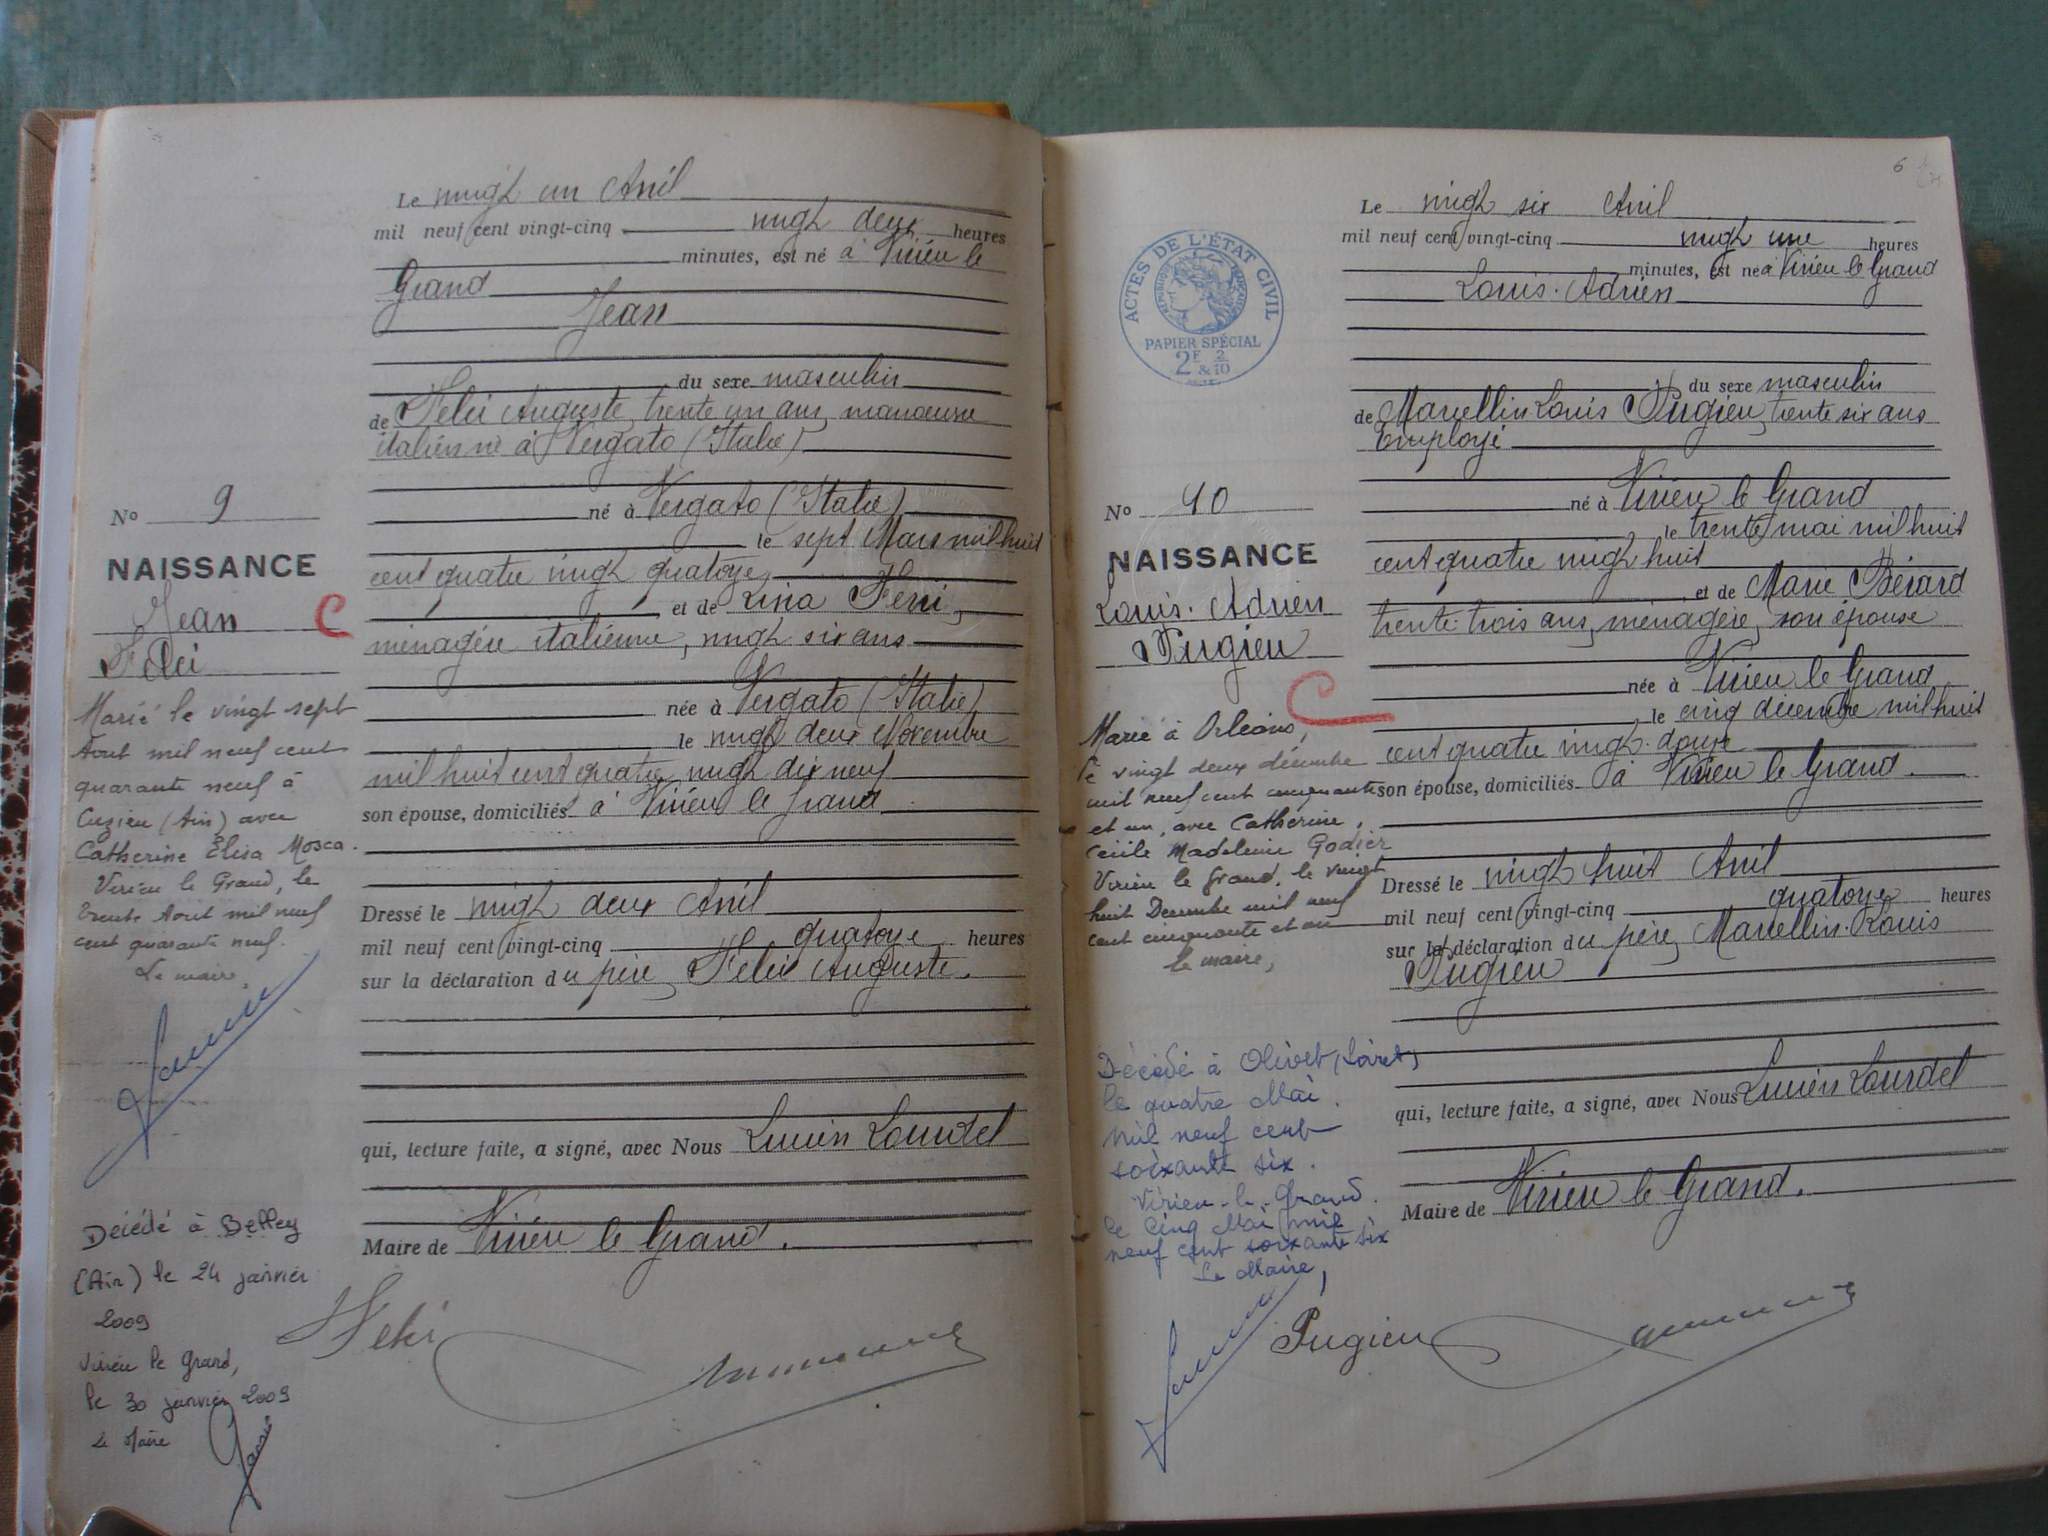 Le vingt un Avril
mil neuf cent vingt-cinq vingt deux heures
minutes, est né à Virieu le
Grand
Jean
du sexe masculin
de Felci Auguste, trente un ans, manoeuvre
italien né à Vergato (Italie)
né à Vergato (Italie)
le sept Mars mil huit
cent quatre vingt quatorze
et de Lina Ferri,
ménagère italienne, vingt six ans
née à Vergato (Italie)
le vingt deux Novembre
mil huit cent quatre vingt dix neuf
son épouse, domiciliés à Virieu le Grand
Dressé le vingt deux Avril
mil neuf cent vingt-cinq quatorze heures
sur la déclaration du père, Felci Auguste.
qui, lecture faite, a signé, avec Nous Lucien Lourdel
Maire de Virieu le Grand.
Felci
No 9
NAISSANCE
Jean
Felci
C
Marié le vingt sept
Aout mil neuf cent
quarante neuf à
Cuzieu (Ain) avec
Catherine Elisa Mosca.
Virieu le Grand, le
trente Aout mil neuf
cent quarante neuf.
Le maire,
Décédé à Belley
(Ain) le 24 janvier
2009
Virieu le Grand,
le 30 janvier 2009
Le Maire
6
Le vingt six Avril
mil neuf cent vingt-cinq vingt une heures
minutes, est né à Virieu le Grand
Louis-Adrien
du sexe masculin
de Marcellin Louis Pugieu, trente six ans
Employé
né à Virieu le Grand
le trente mai mil huit
cent quatre vingt huit
et de Marie Bérard
trente trois ans, ménagère, son épouse
née à Virieu le Grand
le cinq décembre mil huit
cent quatre vingt-douze
son épouse, domiciliés à Virieu le Grand.
Dressé le vingt huit Avril
mil neuf cent vingt-cinq quatorze heures
sur la déclaration du père, Marcellin-Louis
Pugieu
qui, lecture faite, a signé, avec Nous Lucien Lourdel
Maire de Virieu le Grand.
Pugieu
ACTES DE L'ÉTAT CIVIL
RÉPUBLIQUE FRANÇAISE
PAPIER SPÉCIAL
2F & 2/10
No 10
NAISSANCE
Louis-Adrien
Pugieu
C
Marié à Orléans,
le vingt deux décembre
mil neuf cent cinquante
et un, avec Catherine,
Cécile Madeleine Godier
Virieu le Grand, le vingt
huit Décembre mil neuf
cent cinquante et un
le maire,
Décédé à Olivet (Loiret)
le quatre Mai
mil neuf cent
soixante six.
Virieu-le-Grand.
le Cinq Mai mil
neuf cent soixante six
Le Maire,